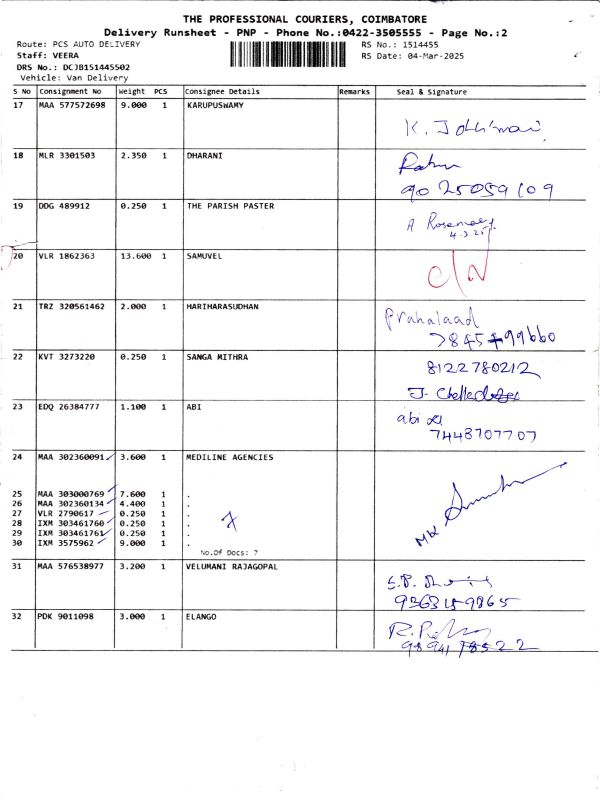 THE PROFESSIONAL COURIERS, COIMBATORE
Delivery Runsheet - PNP - Phone No.:0422-3505555 - Page No.:2
Route: PCS AUTO DELIVERY
RS No.: 1514455
Staff: VEERA
RS Date: 04-Mar-2025
DRS No.: DCJB151445502
Vehicle: Van Delivery
S No Consignment No Weight PCS Consignee Details Remarks Seal & Signature
17 MAA 577572698 9.000 1 KARUPUSWAMY
18 MLR 3301503 2.350 1 DHARANI
9025059109
19 DDG 489912 0.250 1 THE PARISH PASTER
A Rosemary
4.3.25
20 VLR 1862363 13.600 1 SAMUVEL
C/N
21 TRZ 320561462 2.000 1 HARIHARASUDHAN
Prahalaad
7845799660
22 KVT 3273220 0.250 1 SANGA MITHRA
8122780212
23 EDQ 26384777 1.100 1 ABI
abi
7448707707
24 MAA 302360091 3.600 1 MEDILINE AGENCIES
25 MAA 303000769 7.600 1 .
26 MAA 302360134 4.400 1 .
27 VLR 2790617 0.250 1 .
28 IXM 303461760 0.250 1 .
29 IXM 303461761 0.250 1 .
30 IXM 3575962 9.000 1 .
7
No.Of Docs: 7
31 MAA 576538977 3.200 1 VELUMANI RAJAGOPAL
32 PDK 9011098 3.000 1 ELANGO